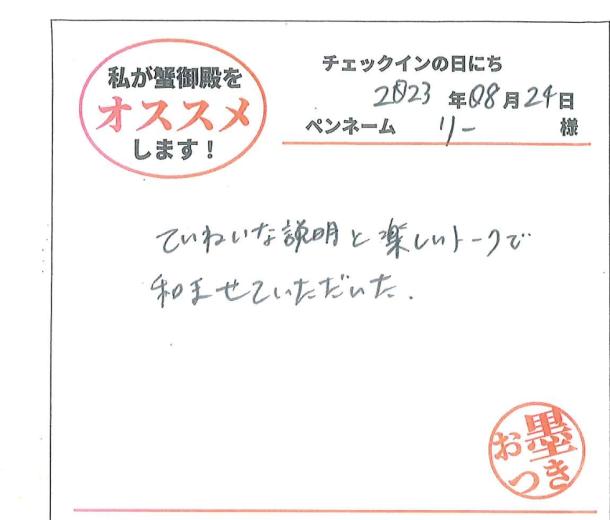 私が蟹御殿を
オススメ
します！
チェックインの日にち
2023 年 08 月 24 日
ペンネーム リー 様
ていねいな説明と楽しいトークで
和ませていただいた.
お墨
つき